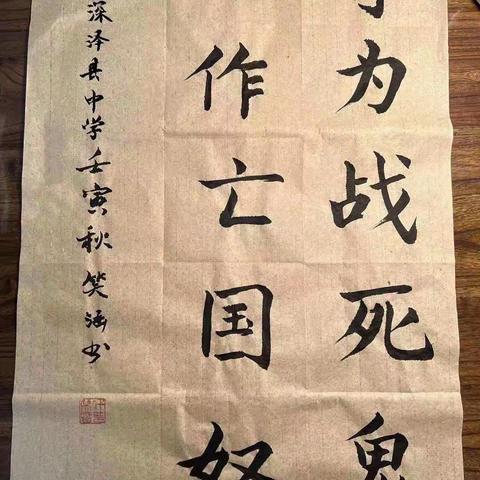 为战死鬼
作亡国奴
深泽县中学壬寅秋笑涵书